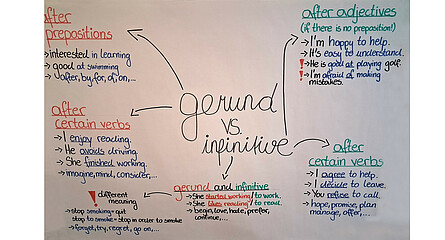 after
prepositions
→ interested in learning
→ good at swimming
→ after, by, for, of, on,...
after adjectives
(if there is no preposition!)
→ I'm happy to help.
→ It's easy to understand.
! → He is good at playing golf.
! → I'm afraid of making
mistakes.
gerund
vs.
infinitive
after
certain verbs
→ I enjoy reading.
→ He avoids driving.
→ She finished working.
→ imagine, mind, consider,...
after
certain verbs
→ I agree to help.
→ I decide to leave.
→ You refuse to call.
→ hope, promise, plan
manage, offer,...
gerund and infinitive
→ She started working / to work.
→ She likes reading / to read.
→ begin, love, hate, prefer,
continue,...
! different
meaning
→ stop smoking = quit
stop to smoke = stop in order to smoke
→ forget, try, regret, go on,...